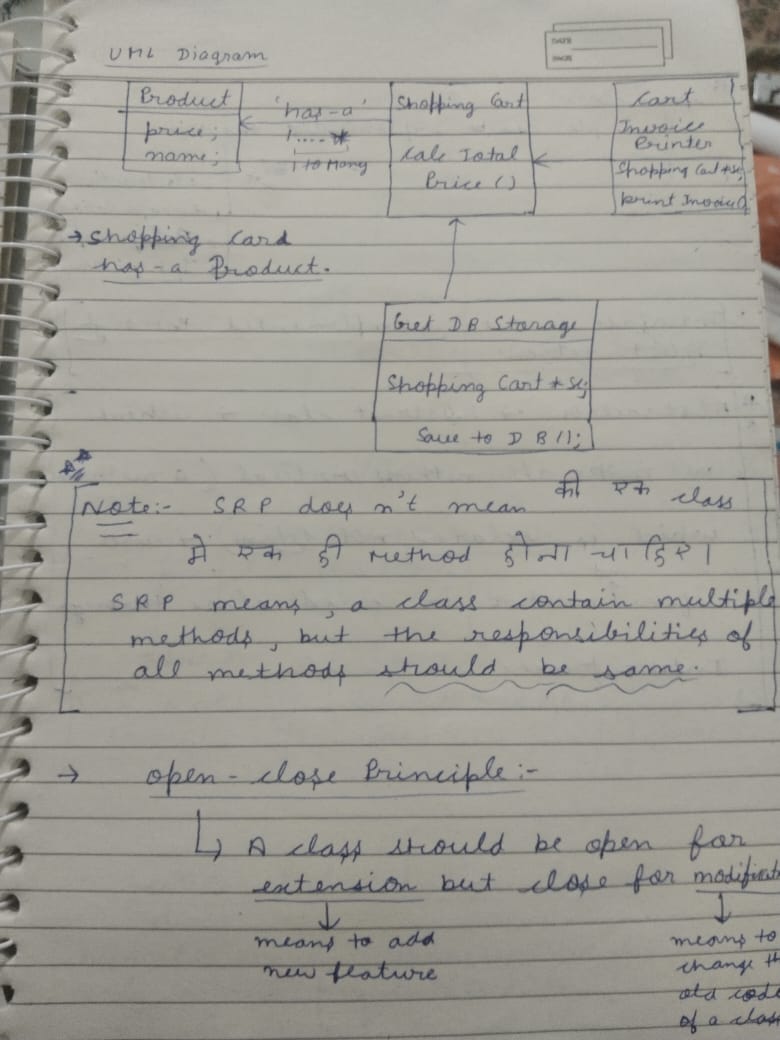 DATE
PAGE
UML Diagram
Product
price;
name;
'has-a'
1....*
1 to Many
Shopping Cart
Calc Total
Price ()
Cart
Invoice
Printer
Shopping Cart *sc;
print Invoice()
→ Shopping Card
has-a Product.
Shopping Cart * sc;
Save to DB ();
Note:- SRP does n't mean की एक class
मे एक ही method होना चाहिए।
SRP means, a class contain multiple
methods, but the responsibilities of
all methods should be same.
→ open-close Principle:-
A class should be open for
extension but close for
means to add
new feature
means to
change
old code
of a class